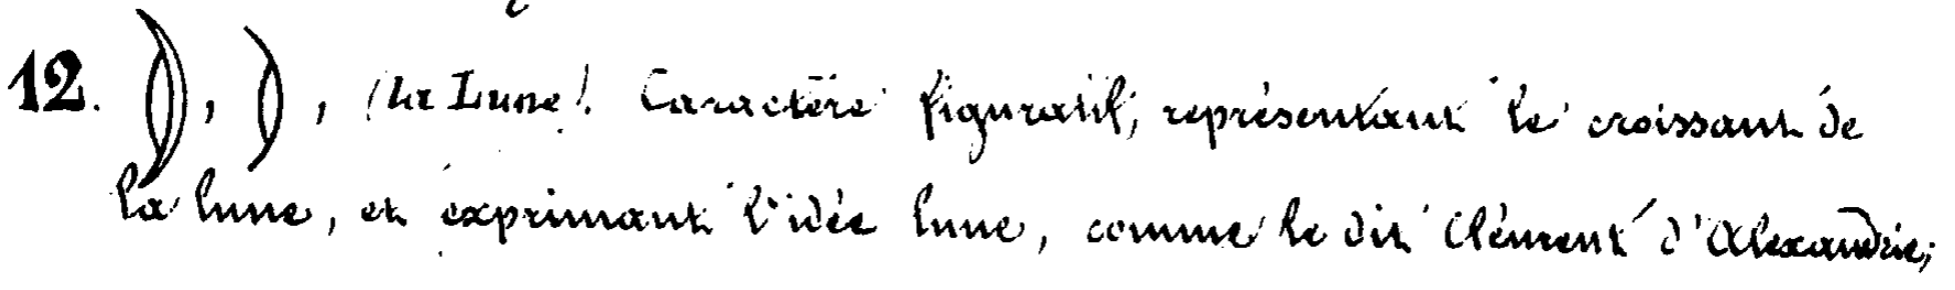 12. , , (la Lune). Caractère figuratif, représentant le croissant de
la lune, et exprimant l'idée lune, comme le dit Clément d'Alexandrie;